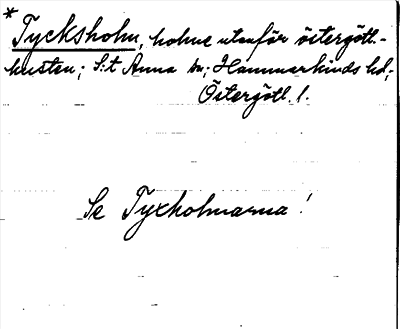 *
Tycksholm, holme utanför östergötl.-
kusten; S:t Anna sn; Hammarkinds hd,;
Östergötl. l.
Se Tyxholmarna!